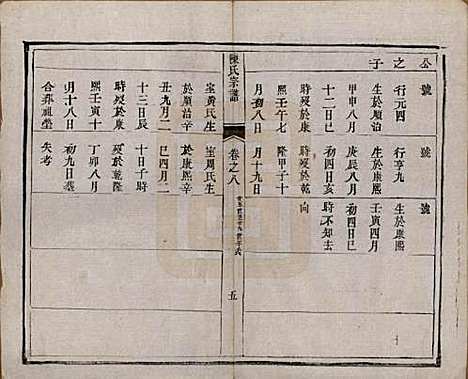 公之子
號
行元四
生於順治
甲申八月
十二日巳
時歿於康
熙壬午七
月初八日
號
行亨九
生於康熙
庚辰八月
初四日亥
時歿於乾
隆甲子十
月十九日
號
生於康熙
壬寅四月
初四日巳
時不知去
向
陳氏宗譜
卷之八
五
室黃氏生
於順治辛
丑九月二
十三日辰
時歿於康
熙壬寅十
月十八日
合葬祖塋
室周氏生
於康熙辛
巳四月二
十日子時
歿於乾隆
丁卯八月
初九日葬
失考